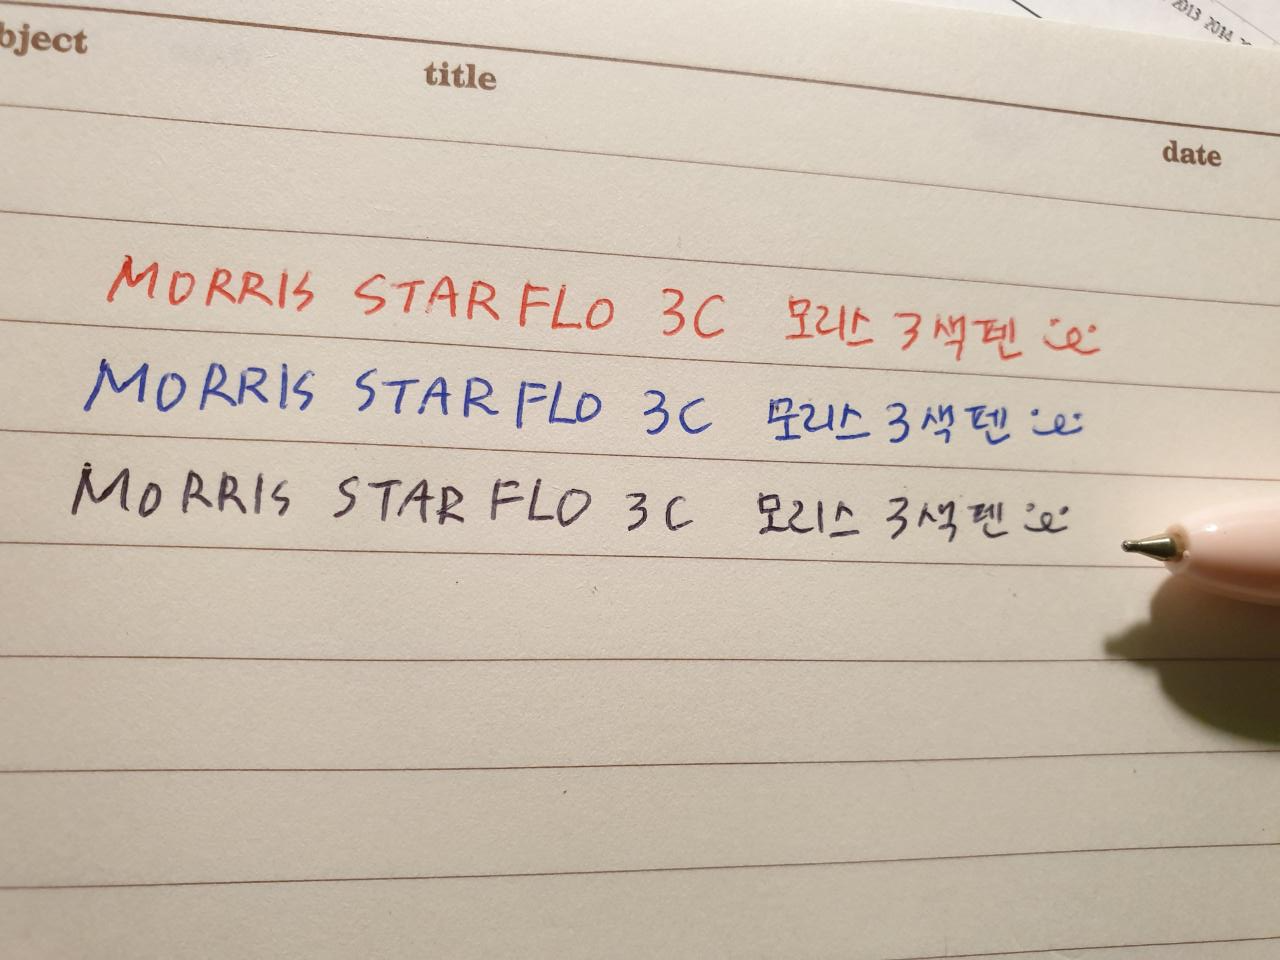 2013 2014
bject
title
date
MORRIS STAR FLO 3C 모리스 3색펜
MORRIS STAR FLO 3C 모리스 3색펜
MORRIS STAR FLO 3C 모리스 3색펜